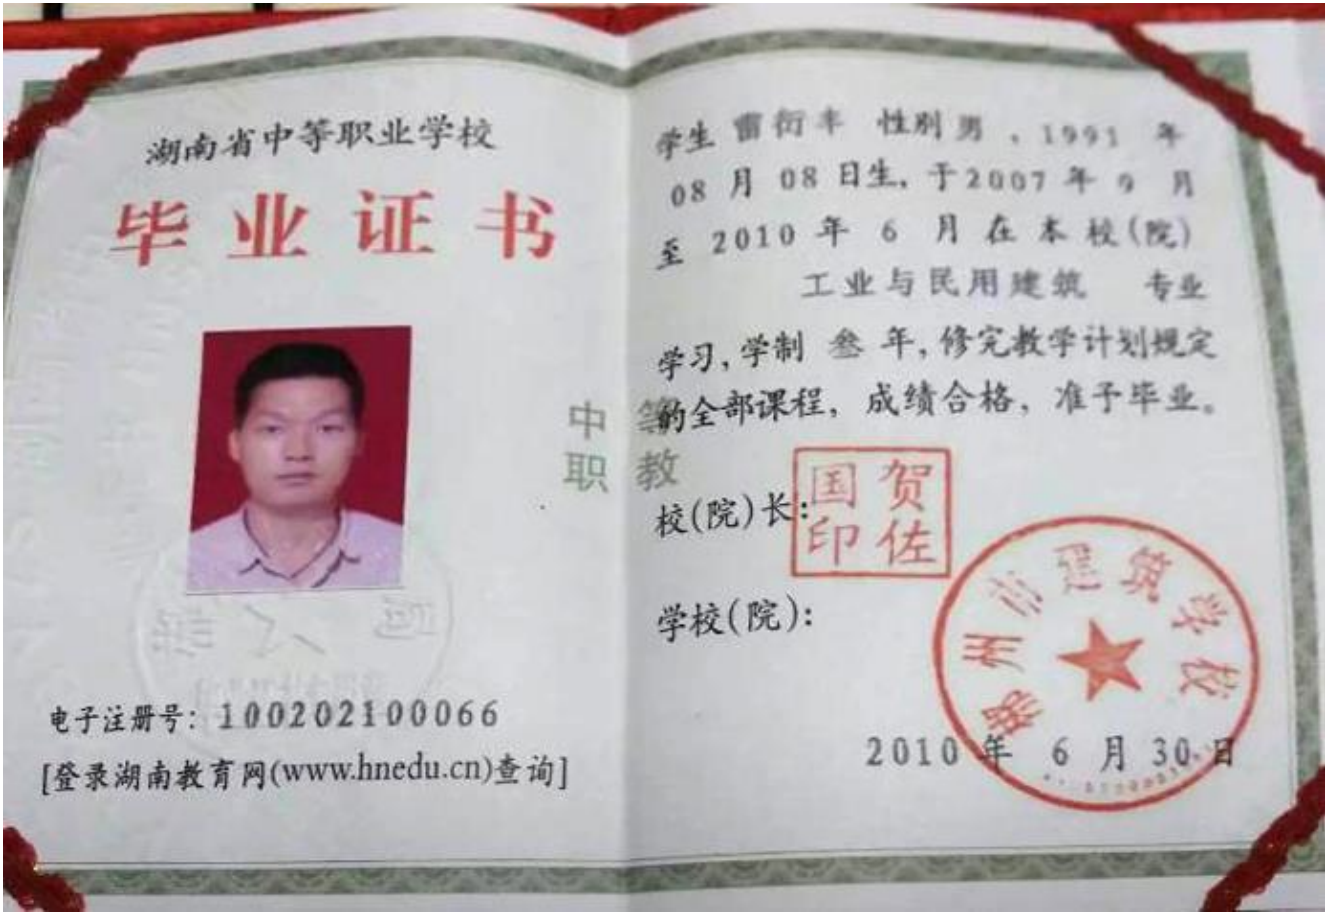 湖南省中等职业学校
毕业证书
电子注册号：100202100066
[登录湖南教育网(www.hnedu.cn)查询]
中等
职教
学生 雷衍丰 性别 男 ，1991 年
08 月 08 日生，于2007 年 9 月
至 2010 年 6 月 在 本 校(院)
工业与民用建筑 专业
学习，学制 叁 年，修完教学计划规定
的全部课程，成绩合格，准予毕业。
校(院)长：
贺佐国印
学校(院)：
州市建筑学校
2010 年 6 月 30 日